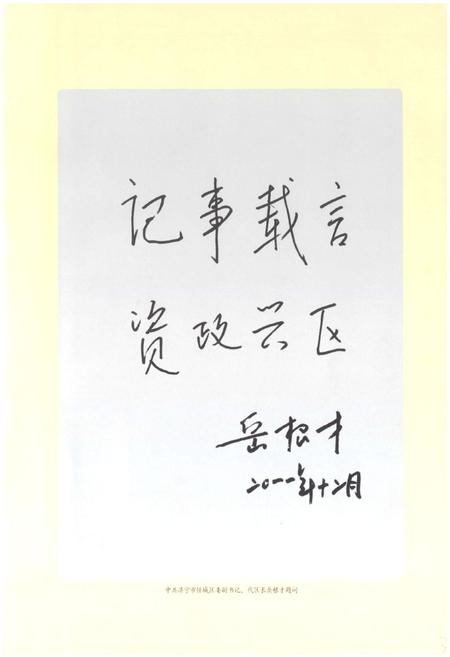 记事载言
资政兴区
岳根才
二〇一一年十二月
中共济宁市任城区委副书记、代区长岳根才题词